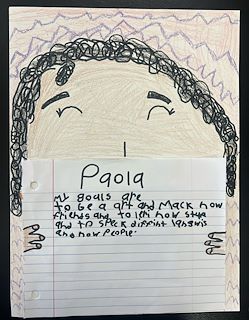 Paola
My goals are
to be a art and Mack now
friends and to lern now stuf
and to speck diffrint langwis
and now people.